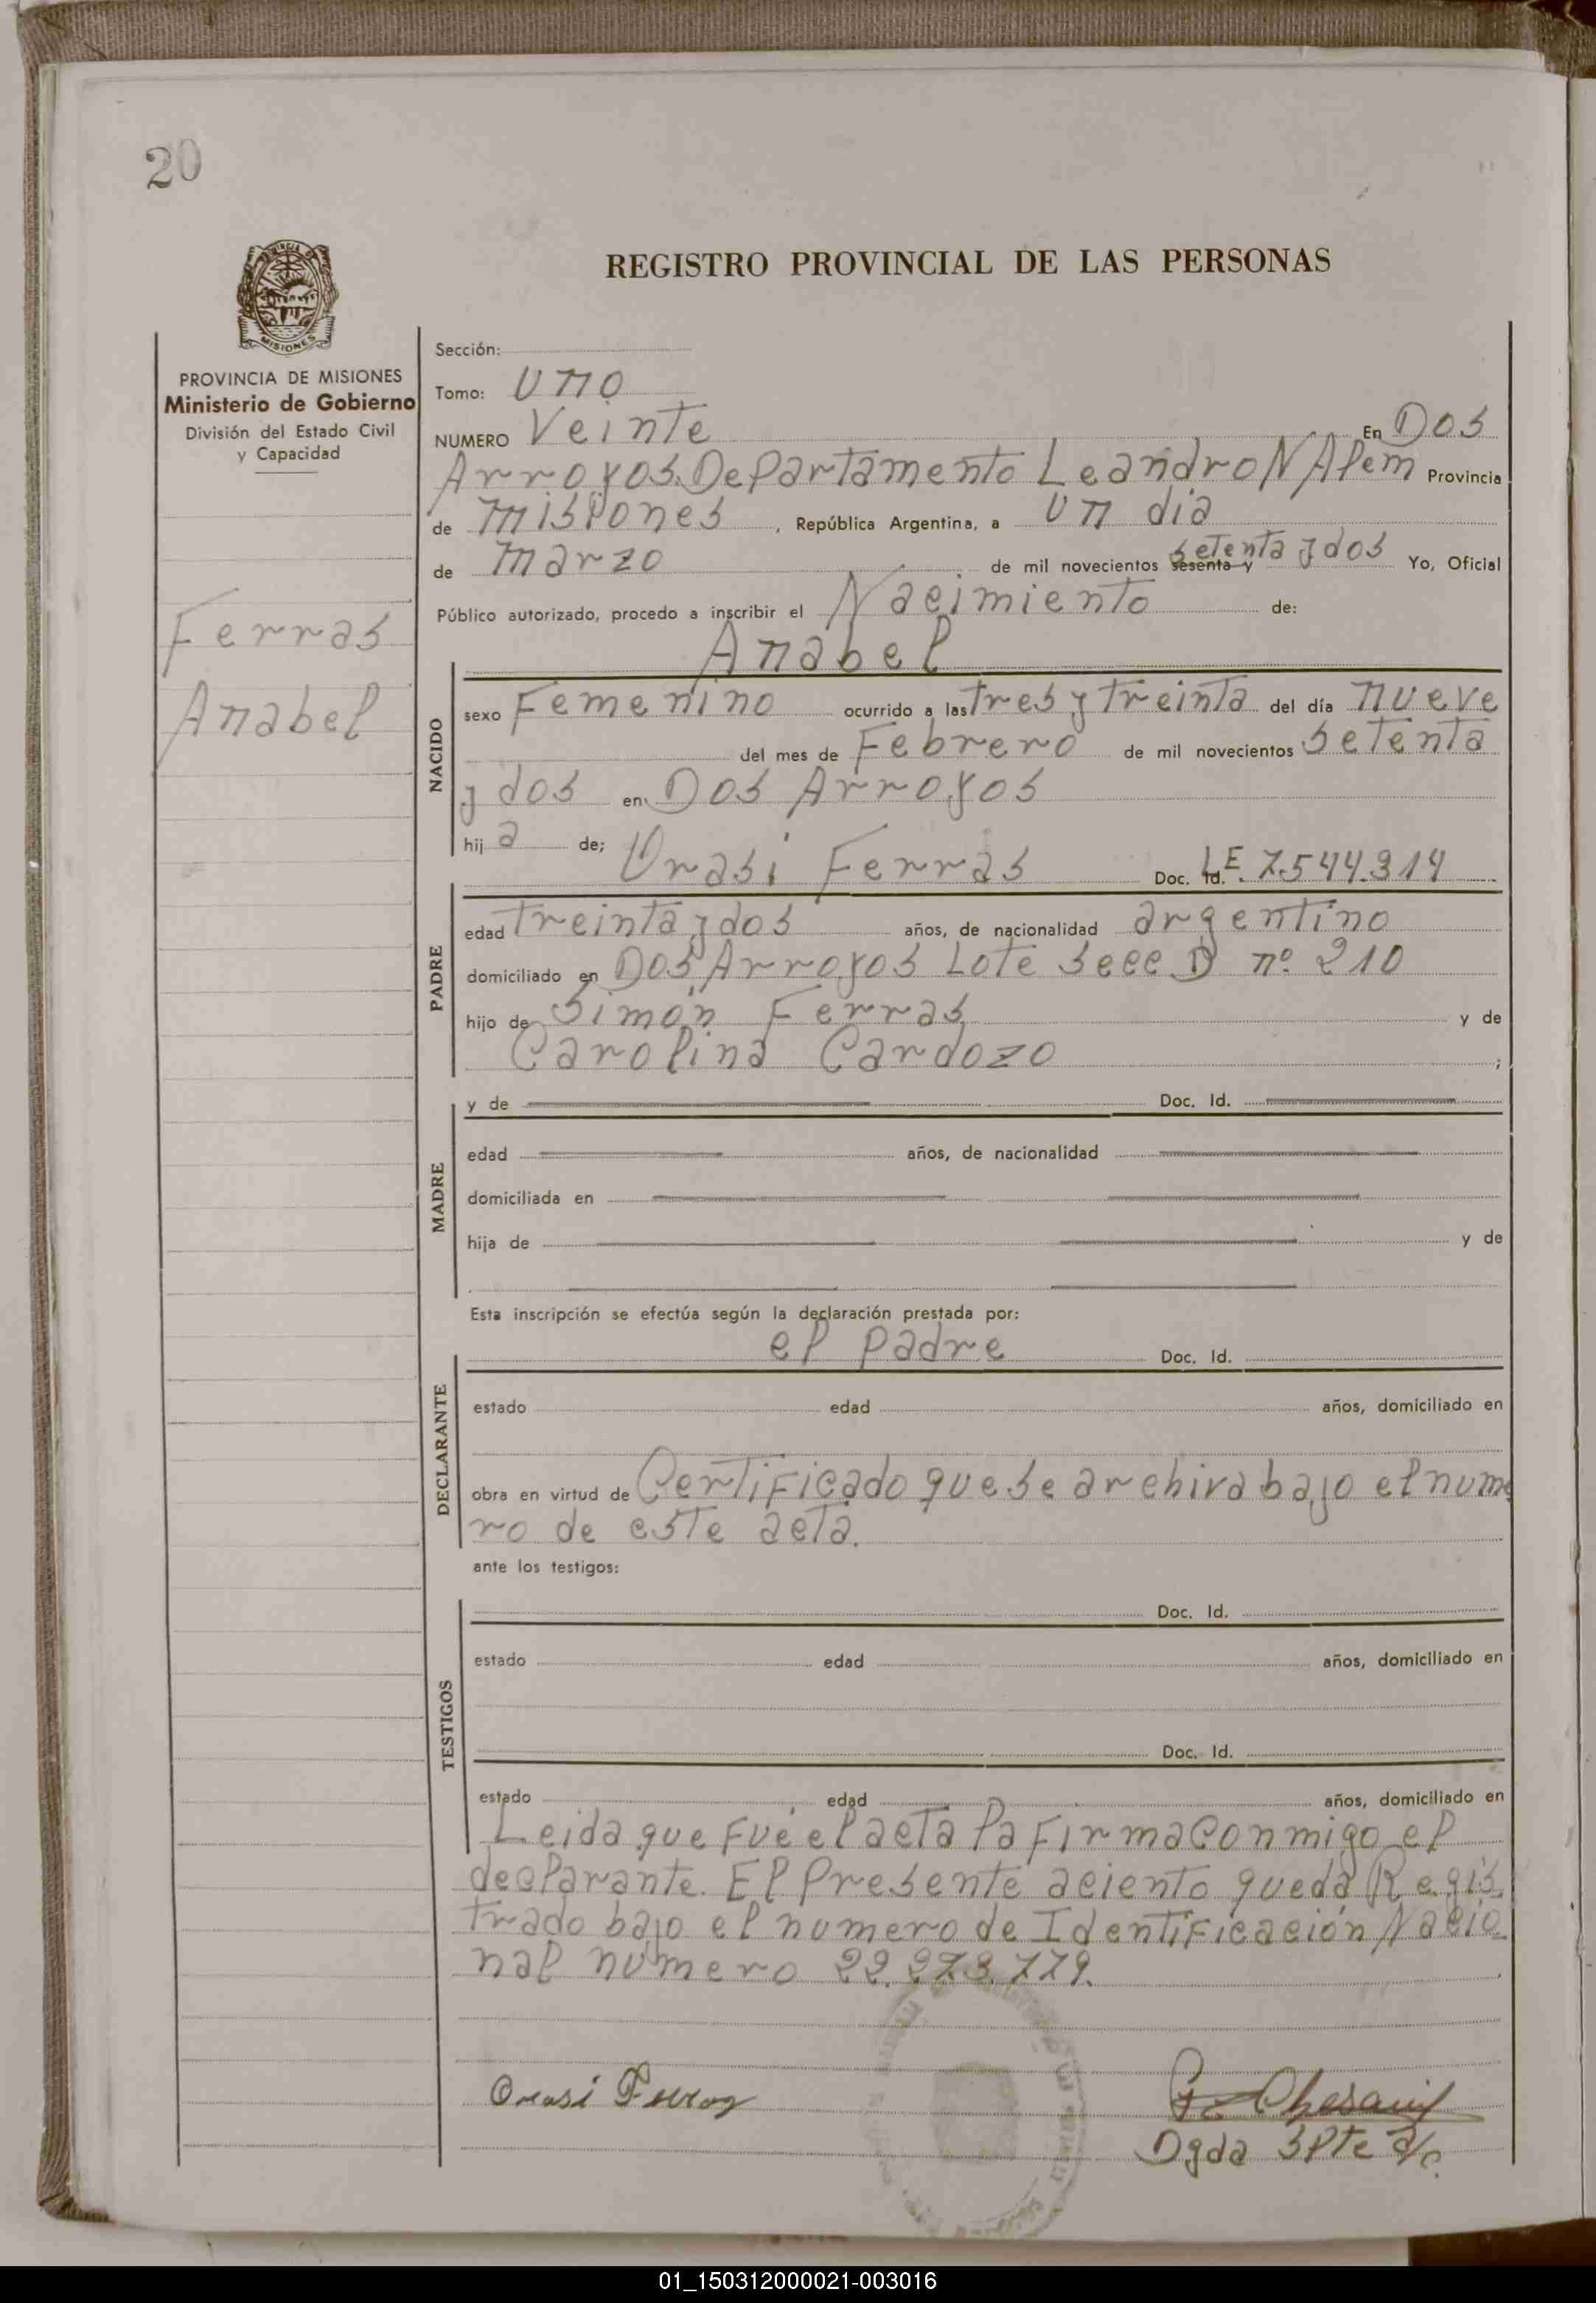 20
REGISTRO PROVINCIAL DE LAS PERSONAS
MISIONES
PROVINCIA DE MISIONES
Ministerio de Gobierno
División del Estado Civil
y Capacidad
Ferras
Anabel
Sección:
Tomo: Uno
NUMERO Veinte En Dos
Arroyos. Departamento Leandro N Alem Provincia
de Misiones, República Argentina, a un dia
de Marzo de mil novecientos sesenta y setenta y dos Yo, Oficial
Público autorizado, procedo a inscribir el Nacimiento de:
Anabel
NACIDO
sexo Femenino ocurrido a las tres y treinta del día nueve
del mes de Febrero de mil novecientos setenta
y dos en Dos Arroyos
hij a de; Urasi Ferras Doc. Id. L.E. 7.544.314
PADRE
edad treinta y dos años, de nacionalidad argentino
domiciliado en Dos Arroyos Lote Secc D nº 210
hijo de Simón Ferras y de
Carolina Cardozo ;
MADRE
y de Doc. Id.
edad años, de nacionalidad
domiciliada en
hija de y de
Esta inscripción se efectúa según la declaración prestada por:
el padre Doc. Id.
DECLARANTE
estado edad años, domiciliado en
obra en virtud de Certificado que se archiva bajo el nume
ro de este acta.
ante los testigos:
TESTIGOS
Doc. Id.
estado edad años, domiciliado en
Doc. Id.
estado edad años, domiciliado en
Leida que fué el acta la firma conmigo el
declarante. El presente aciento queda Regis
trado bajo el numero de Identificación Nacio
nal numero 22.273.779.
Orasi Ferras
Dgda Splte a/c.
01_150312000021-003016